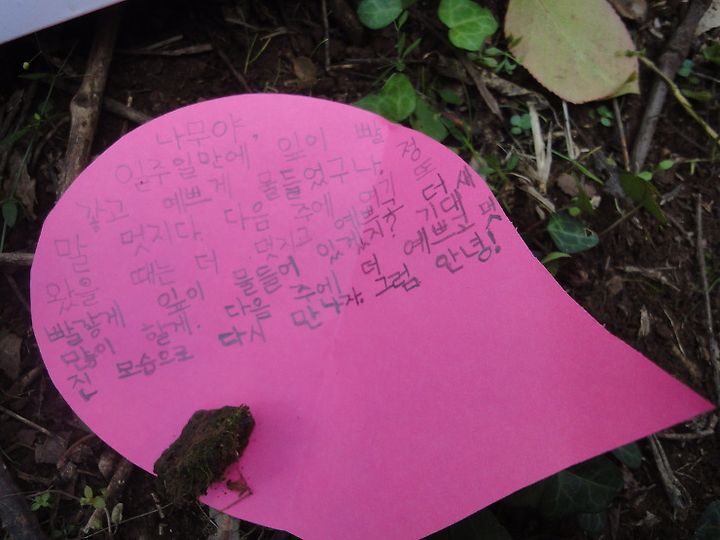 나무야,
일주일만에 잎이 빨
갛고 예쁘게 물들었구나. 정
말 멋지다. 다음 주에 여기 또
왔을 때는 더 멋지고 예쁘게 더 새
빨갛게 잎이 물들어 있겠지? 기대
많이 할게. 다음 주에 더 예쁘고 멋
진 모습으로 다시 만나자. 그럼 안녕!